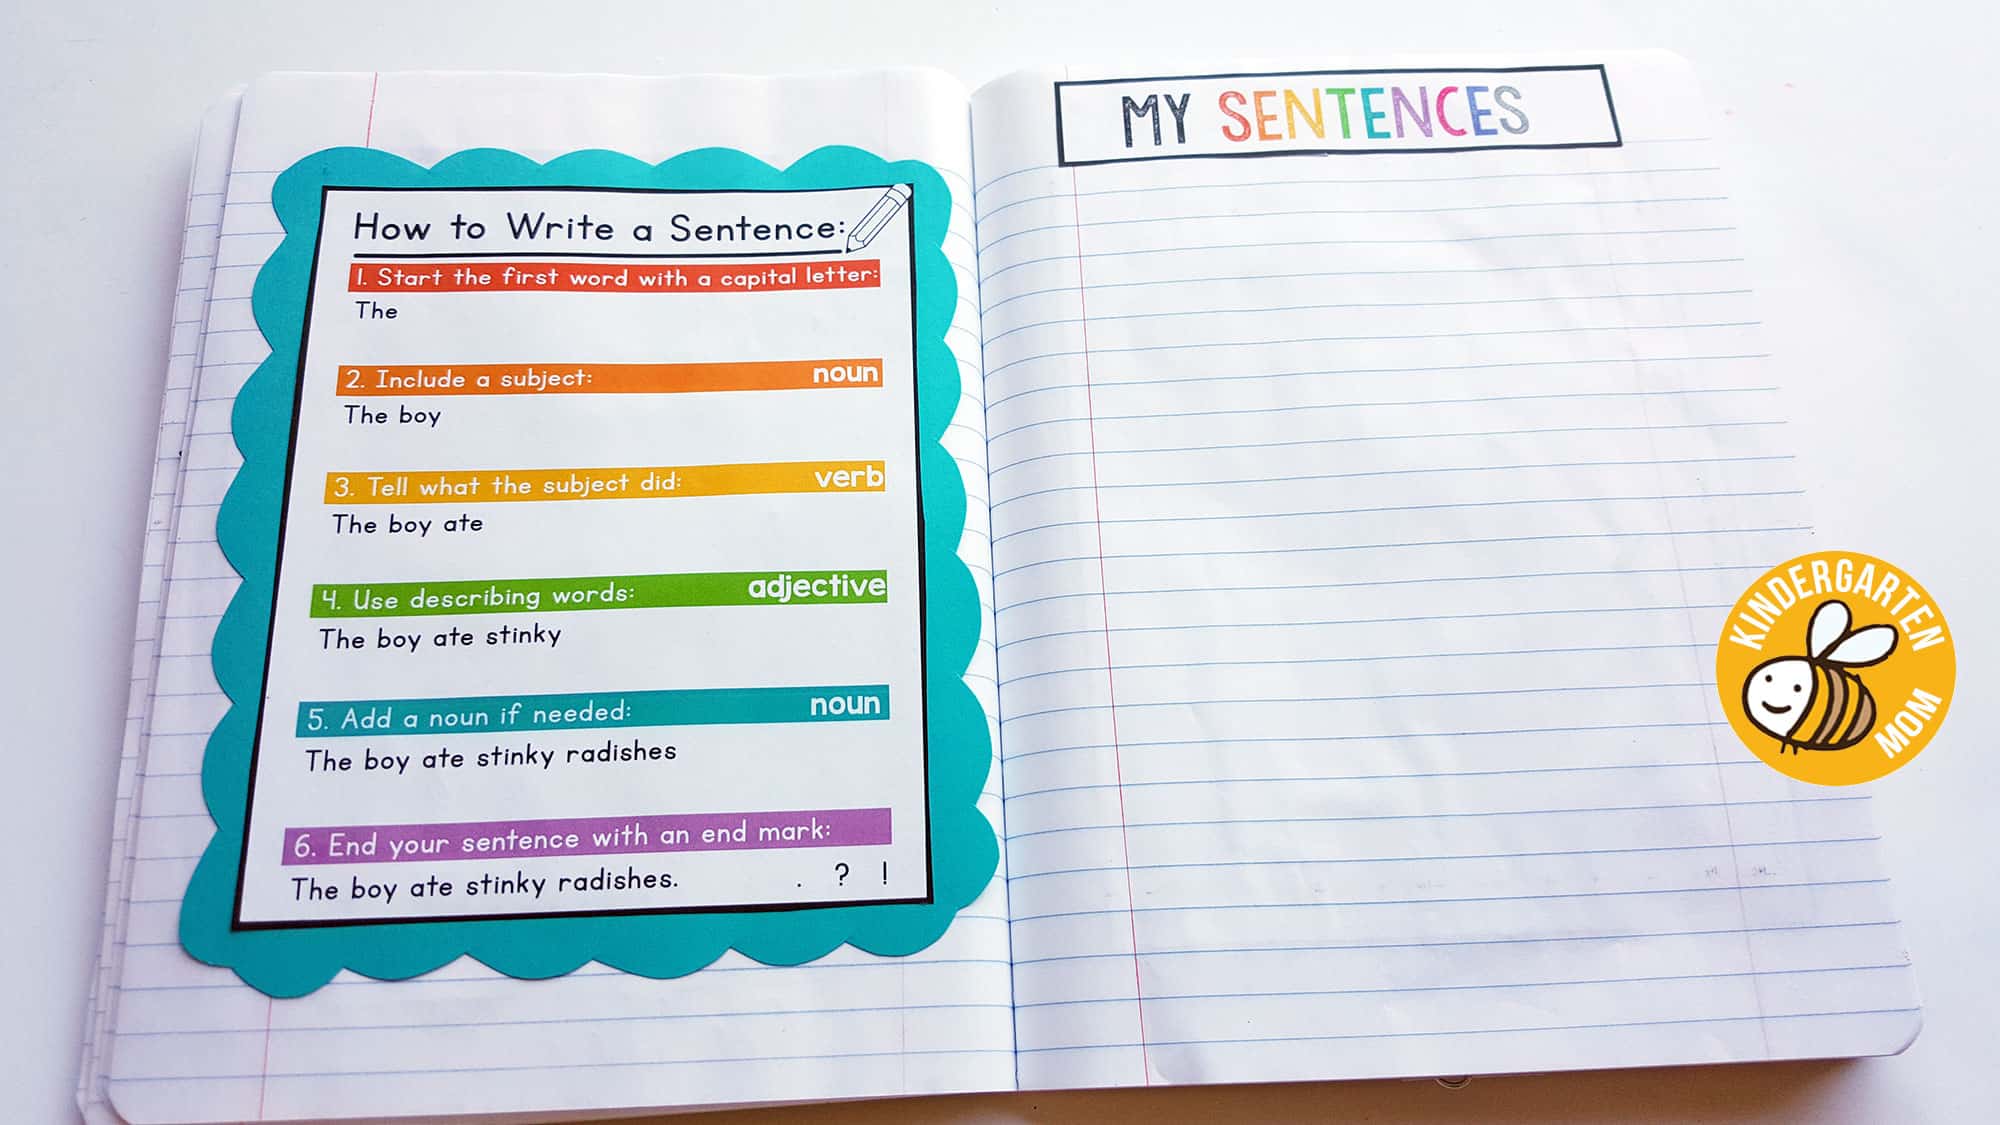 How to Write a Sentence:
1. Start the first word with a capital letter:
The
2. Include a subject: noun
The boy
3. Tell what the subject did: verb
The boy ate
4. Use describing words: adjective
The boy ate stinky
5. Add a noun if needed: noun
The boy ate stinky radishes
6. End your sentence with an end mark:
The boy ate stinky radishes. . ? !
MY SENTENCES
KINDERGARTEN
MOM